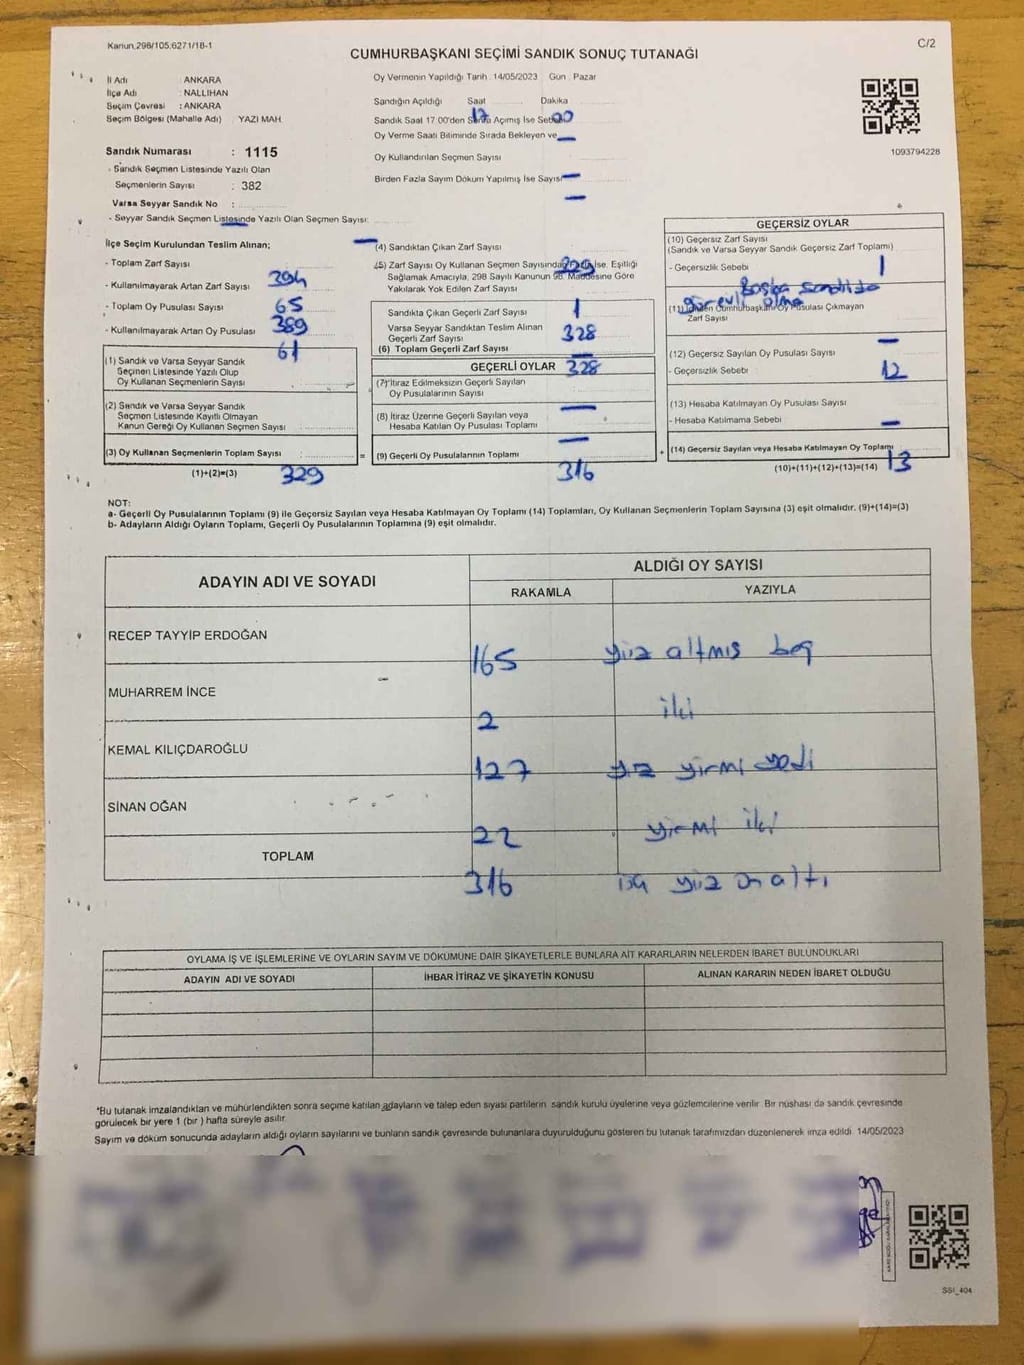 Kanun.298/105.6271/18-1
C/2
CUMHURBAŞKANI SEÇİMİ SANDIK SONUÇ TUTANAĞI
İl Adı : ANKARA
İlçe Adı : NALLIHAN
Seçim Çevresi : ANKARA
Seçim Bölgesi (Mahalle Adı) YAZI MAH.
Sandık Numarası : 1115
- Sandık Seçmen Listesinde Yazılı Olan
Seçmenlerin Sayısı : 382
Varsa Seyyar Sandık No :
- Seyyar Sandık Seçmen Listesinde Yazılı Olan Seçmen Sayısı:
Oy Vermenin Yapıldığı Tarih : 14/05/2023 Gün : Pazar
Sandığın Açıldığı Saat Dakika
17 00
Sandık Saat 17.00'den Sonra Açımış İse Sebebi
Oy Verme Saati Bitiminde Sırada Bekleyen ve
Oy Kullandırılan Seçmen Sayısı
Birden Fazla Sayım Döküm Yapılmış İse Sayısı
1093794228
İlçe Seçim Kurulundan Teslim Alınan;
- Toplam Zarf Sayısı
394
- Kullanılmayarak Artan Zarf Sayısı
65
- Toplam Oy Pusulası Sayısı
389
- Kullanılmayarak Artan Oy Pusulası
61
(1) Sandık ve Varsa Seyyar Sandık
Seçmen Listesinde Yazılı Olup
Oy Kullanan Seçmenlerin Sayısı
(2) Sandık ve Varsa Seyyar Sandık
Seçmen Listesinde Kayıtlı Olmayan
Kanun Gereği Oy Kullanan Seçmen Sayısı
(3) Oy Kullanan Seçmenlerin Toplam Sayısı
(1)+(2)=(3)
329
(4) Sandıktan Çıkan Zarf Sayısı
329
(5) Zarf Sayısı Oy Kullanan Seçmen Sayısından Fazla İse, Eşitliği
Sağlamak Amacıyla, 298 Sayılı Kanunun 98. Maddesine Göre
Yakılarak Yok Edilen Zarf Sayısı
1
Sandıkta Çıkan Geçerli Zarf Sayısı
328
Varsa Seyyar Sandıktan Teslim Alınan
Geçerli Zarf Sayısı
(6) Toplam Geçerli Zarf Sayısı
328
GEÇERLİ OYLAR
(7) İtiraz Edilmeksizin Geçerli Sayılan
Oy Pusulalarının Sayısı
(8) İtiraz Üzerine Geçerli Sayılan veya
Hesaba Katılan Oy Pusulası Toplamı
= (9) Geçerli Oy Pusulalarının Toplamı
316
GEÇERSİZ OYLAR
(10) Geçersiz Zarf Sayısı
(Sandık ve Varsa Seyyar Sandık Geçersiz Zarf Toplamı)
1
- Geçersizlik Sebebi
Başka sandıkta
görevli olma
(11) İçinden Cumhurbaşkanı Oy Pusulası Çıkmayan
Zarf Sayısı
(12) Geçersiz Sayılan Oy Pusulası Sayısı
12
- Geçersizlik Sebebi
(13) Hesaba Katılmayan Oy Pusulası Sayısı
- Hesaba Katılmama Sebebi
+ (14) Geçersiz Sayılan veya Hesaba Katılmayan Oy Toplamı
(10)+(11)+(12)+(13)=(14)
13
NOT:
a- Geçerli Oy Pusulalarının Toplamı (9) ile Geçersiz Sayılan veya Hesaba Katılmayan Oy Toplamı (14) Toplamları, Oy Kullanan Seçmenlerin Toplam Sayısına (3) eşit olmalıdır. (9)+(14)=(3)
b- Adayların Aldığı Oyların Toplamı, Geçerli Oy Pusulalarının Toplamına (9) eşit olmalıdır.
ADAYIN ADI VE SOYADI
ALDIĞI OY SAYISI
RAKAMLA YAZIYLA
RECEP TAYYİP ERDOĞAN
165 yüz altmış beş
MUHARREM İNCE
2 iki
KEMAL KILIÇDAROĞLU
127 yüz yirmi yedi
SİNAN OĞAN
22 yirmi iki
TOPLAM
316 üç yüz on altı
OYLAMA İŞ VE İŞLEMLERİNE VE OYLARIN SAYIM VE DÖKÜMÜNE DAİR ŞİKAYETLERLE BUNLARA AİT KARARLARIN NELERDEN İBARET BULUNDUKLARI
ADAYIN ADI VE SOYADI İHBAR İTİRAZ VE ŞİKAYETİN KONUSU ALINAN KARARIN NEDEN İBARET OLDUĞU
*Bu tutanak imzalandıktan ve mühürlendikten sonra seçime katılan adayların ve talep eden siyasi partilerin sandık kurulu üyelerine veya gözlemcilerine verilir. Bir nüshası da sandık çevresinde
görülecek bir yere 1 (bir) hafta süreyle asılır.
Sayım ve döküm sonucunda adayların aldığı oyların sayılarını ve bunların sandık çevresinde bulunanlara duyurulduğunu gösteren bu tutanak tarafımızdan düzenlenerek imza edildi. 14/05/2023
SSI_404